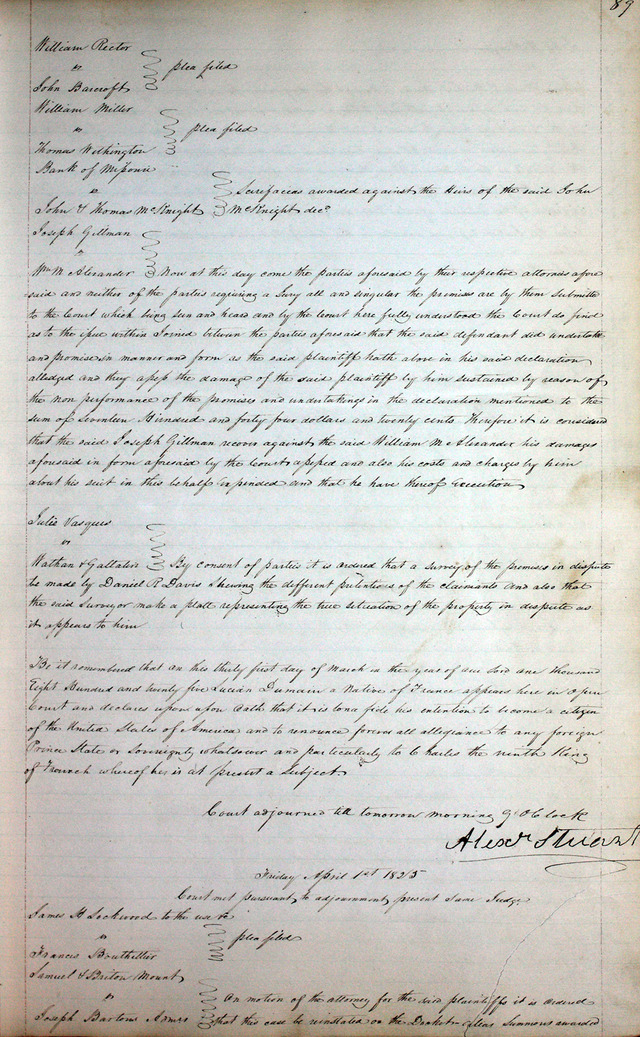 89
William Rector
vs
plea filed
John Barcroft
William Miller
vs
plea filed
Thomas Withington
Bank of Missouri
vs
Scirefacias awarded against the Heirs of the said John
John & Thomas McKnight
McKnight decd
Joseph Gillman
vs
Wm McAlexander Now at this day come the parties aforesaid by their respective attornies afore
said and neither of the parties requiring a Jury all and singular the premises are by them submitted
to the Court which being seen and heard and by the Court here fully understood the Court do find
as to the issue within Joined between the parties aforesaid that the said defendant did undertake
and promise in manner and form as the said plaintiff hath above in his said declaration
alledged and they assess the damage of the said plaintiff by him sustained by reason of
the non performance of the promises and undertakings in the declaration mentioned to the
sum of Seventeen Hundred and forty four dollars and twenty cents Therefore it is considered
that the said Joseph Gillman recover against the said William McAlexander his damages
aforesaid in form aforesaid by the Court assessed and also his costs and charges by him
about his suit in this behalf expended and that he have thereof execution
Julie Vasques
vs
Nathan & Gallatin By consent of parties it is ordered that a survey of the premises in dispute
be made by Daniel R Davis Shewing the different pretentions of the claimants and also that
the said Surveyor make a platt representing the true situation of the property in dispute as
it appears to him
Be it remembered that on this thirty first day of March in the year of our lord one thousand
Eight Hundred and twenty five Lucian Dumain a Native of France appears here in Open
Court and declares upon upon Oath that it is bona fide his intention to become a citizen
of the United States of America and to renounce forever all allegiance to any foreign
Prince State or Sovereignty whatsoever and particularly to Charles the ninth King
of Fraunch whereof he is at present a Subject.
Court adjourned till tomorrow morning 9 O'Clock
Alexr Stuart
Friday April 1st 1825
Court met pursuant to adjournment, present Same Judge
James H Lockwood to the use &c
vs
plea filed
Francis Bouthillier
Samuel & Briton Mount
vs
On motion of the attorney for the said plaintiffs it is ordered
Joseph Bartons Admrs that this case be reinstated on the Docket Alias Summons awarded